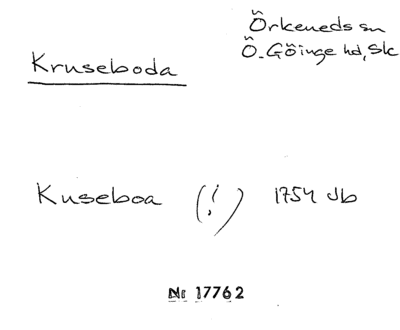 Örkeneds sn
Ö. Göinge hd, Sk
Kruseboda
Kuseboa (!) 1754 Jb
Nr 17762